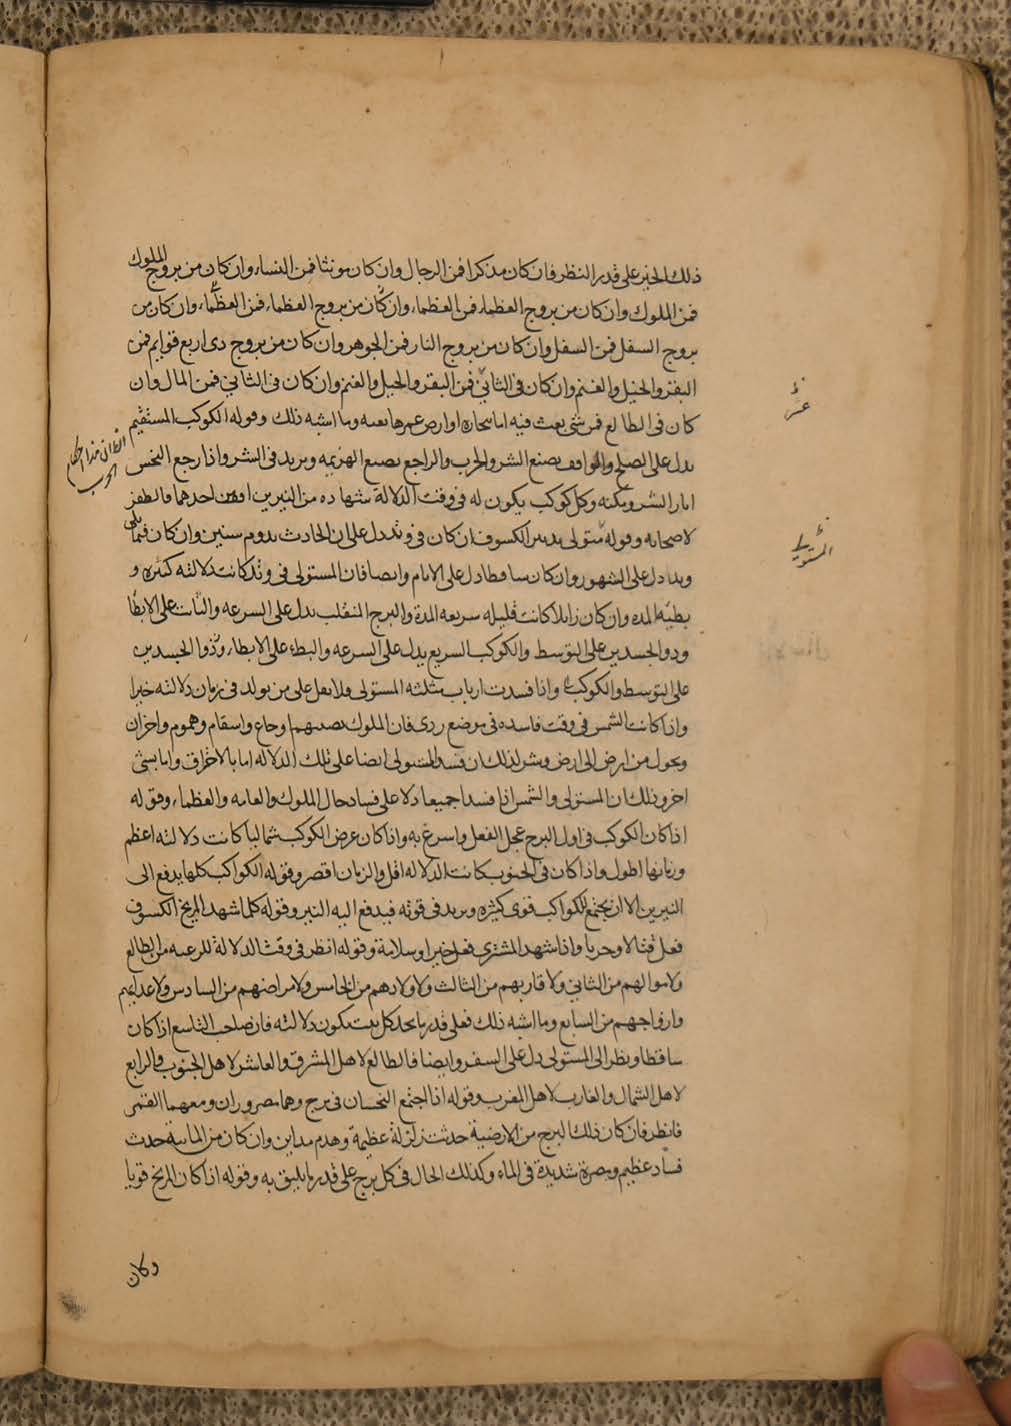 ذلك الخبر على قدر النظر فان كان مذكرا فمن الرجال وان كان مونثا فمن النساء وان كان من بروج الملوك
فمن الملوك وان كان من بروج العظماء فمن العظماء وان كان من بروج العظماء فمن العظماء وان كان من
بروج السفل فمن السفل وان كان من بروج النار فمن الجوهر وان كان من بروج ذى اربع قوايم فمن
البقر والخيل والغنم وان كان فى الثانى فمن البقر والخيل والغنم وان كان فى الثانى فمن المال وان
كان فى الطالع فمن شى بعث فيه اما تجارة او ارض عمرها نفسه وما اشبه ذلك وقوله الكوكب المستقيم
يدل على الصلح والواقف يصنع الشر والحرب والراجع يصنع الهزيمه ويزيد فى الشر واذا رجع النحس
اثار الشر ومكنه وكل كوكب يكون له فى وقت الدلالة شهاده من النيرين او من احدهما فالظفر
لاصحابه وقوله متولى تدبير الكسوف ان كان فى وتد دل على ان الحادث يدوم سنين وان كان فيما يلى
وتدا دل على الشهور وان كان ساقطا دل على الايام وايضا فان المستولى فى وتد كانت دلالته كثيره و
بطيه المده وان كان زايلا كانت قليله سريعه المدة والبرج المنقلب يدل على السرعه والثابت على الابطا
وذو الجسدين على التوسط والكوكب السريع يدل على السرعه والبطء على الابطاء وذو الجسدين
على التوسط والكوكب واذا فسدت ارباب مثلثه المستولى فلا يفل على من يولد فى زمان دلالته خيرا
واذا كانت الشمس فى وقت فاسده فى موضع ردى فان الملوك تصيبهم اوجاع واسقام وهموم واحزان
وتحول من ارض الى ارض وشر لذلك ان فسد المستولى ايضا على تلك الدلاله اما بالاحراق واما بشى
اخر وذلك ان المستولى والشمس اذا فسدا جميعا دلا على فساد حال الملوك والعامه والعظماء وقوله
اذا كان الكوكب فى اول البرج عجل الفعل واسرع به واذا كان عرض الكوكب شماليا كانت دلالته اعظم
وزمانها اطول واذا كان فى الجنوب كانت الدلاله اقل والزمان اقصر وقوله الكواكب كلها يدفع الى
النيرين الا ان يجتمع للكواكب قوى كثيره ويزيد فى قوته فيدفع اليه النير وقوله كلما شهد المريخ الكسوف
فعل قتالا وحربا واذا شهد المشترى فعل خيرا وسلامة وقوله انظر فى وقت الدلالة للرعيه من الطالع
ولاموالهم من الثانى ولاقاربهم من الثالث ولاولادهم من الخامس ولامراضهم من السادس ولاعدايهم
وازواجهم من السابع وما اشبه ذلك فعلى قدر ما تجد كل بيت يكون دلالته فان صاحب التاسع اذا كان
ساقطا ونظر الى المستولى دل على السفر وايضا فالطالع لاهل المشرق والعاشر لاهل الجنوب والرابع
لاهل الشمال والغارب لاهل المغرب وقوله اذا اجتمع النحسان فى برج وهما مضروران ومعهما القمر
فانظر فان كان ذلك البرج من الارضية حدثت زلزلة عظيمة وهدم مداين وان كان من المائية حدث
فساد عظيم ومضرة شديدة فى الماء وكذلك الحال فى كل برج على قدر ما يليق به وقوله اذا كان المريخ قويا
وكان